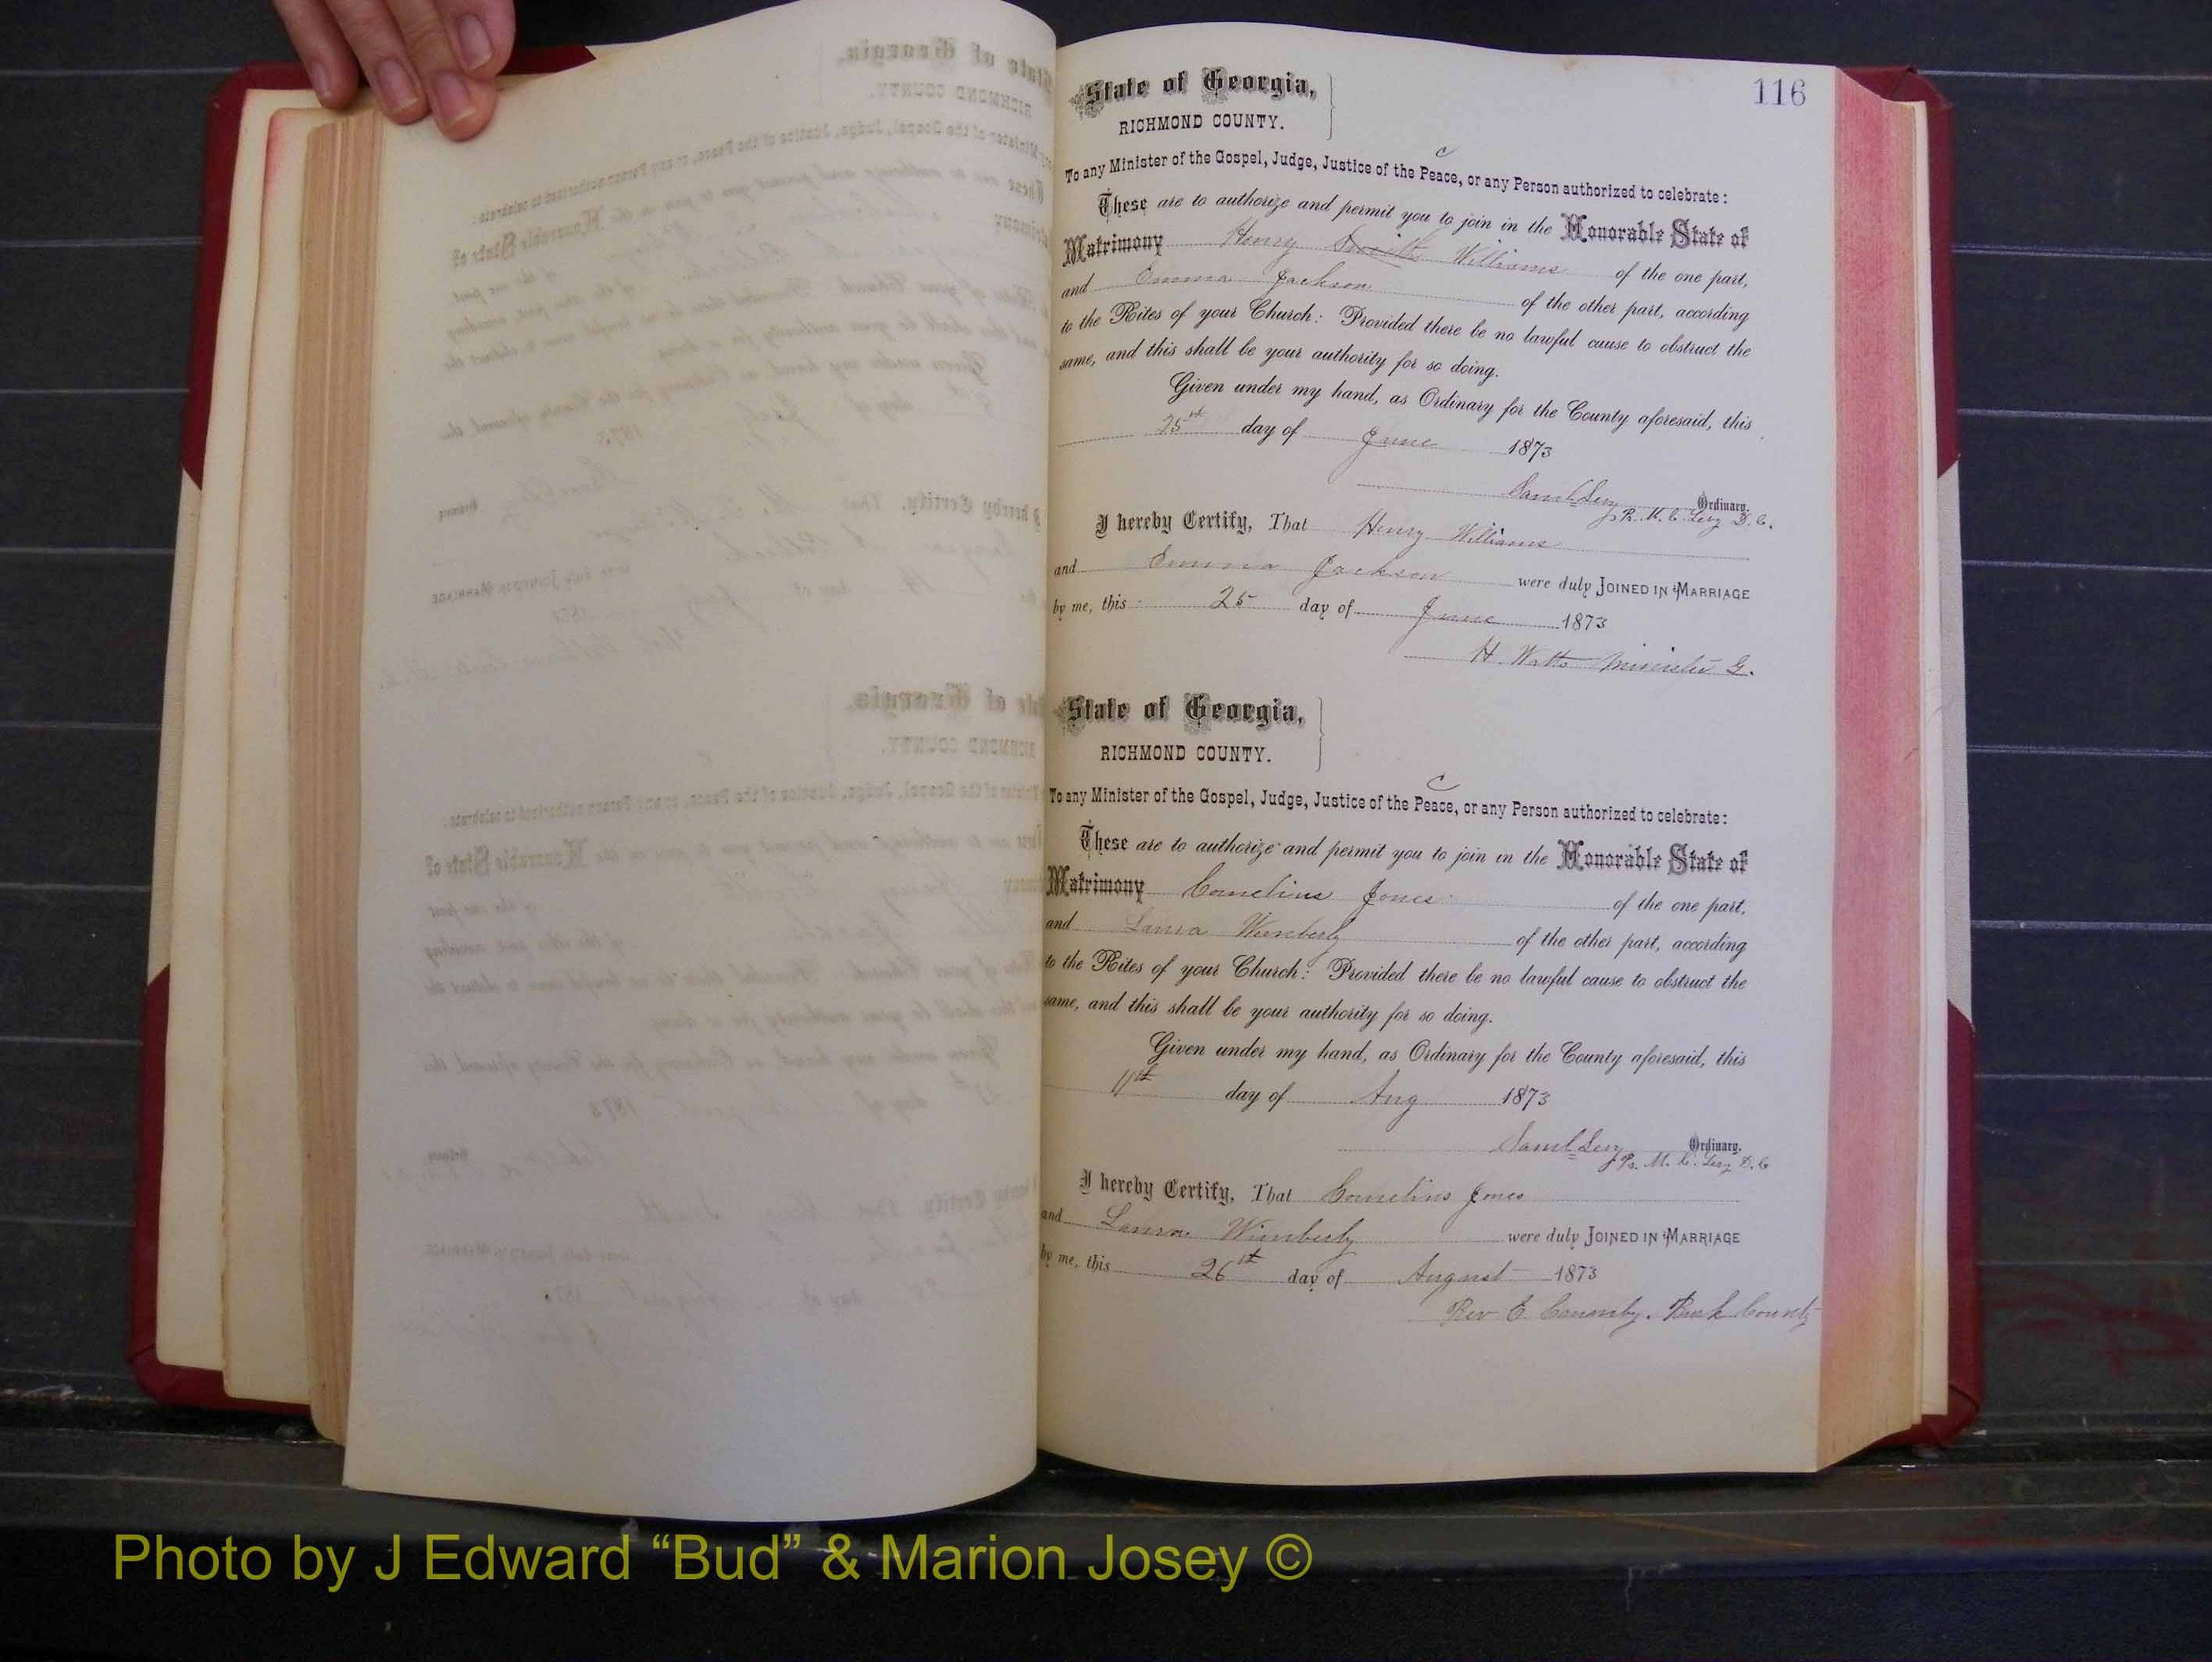 116
State of Georgia,
RICHMOND COUNTY.
C
To any Minister of the Gospel, Judge, Justice of the Peace, or any Person authorized to celebrate:
These are to authorize and permit you to join in the Honorable State of
Matrimony Henry Smith Williams of the one part,
and Emma Jackson of the other part, according
to the Rites of your Church: Provided there be no lawful cause to obstruct the
same, and this shall be your authority for so doing.
Given under my hand, as Ordinary for the County aforesaid, this
25th day of June 1873
Saml Levy Ordinary.
Pr. M. C. Levy D. C.
I hereby Certify, That Henry Williams
and Emma Jackson were duly JOINED IN MARRIAGE
by me, this 25 day of June 1873
H Watts Minister G.
State of Georgia,
RICHMOND COUNTY.
C
To any Minister of the Gospel, Judge, Justice of the Peace, or any Person authorized to celebrate:
These are to authorize and permit you to join in the Honorable State of
Matrimony Cornelius Jones of the one part,
and Laura Wimberly of the other part, according
to the Rites of your Church: Provided there be no lawful cause to obstruct the
same, and this shall be your authority for so doing.
Given under my hand, as Ordinary for the County aforesaid, this
11th day of Aug 1873
Saml Levy Ordinary.
Pr. M. C. Levy D. C
I hereby Certify, That Cornelius Jones
and Laura Wimberly were duly JOINED IN MARRIAGE
by me, this 26th day of August 1873
Rev E County
Photo by J Edward “Bud” & Marion Josey ©